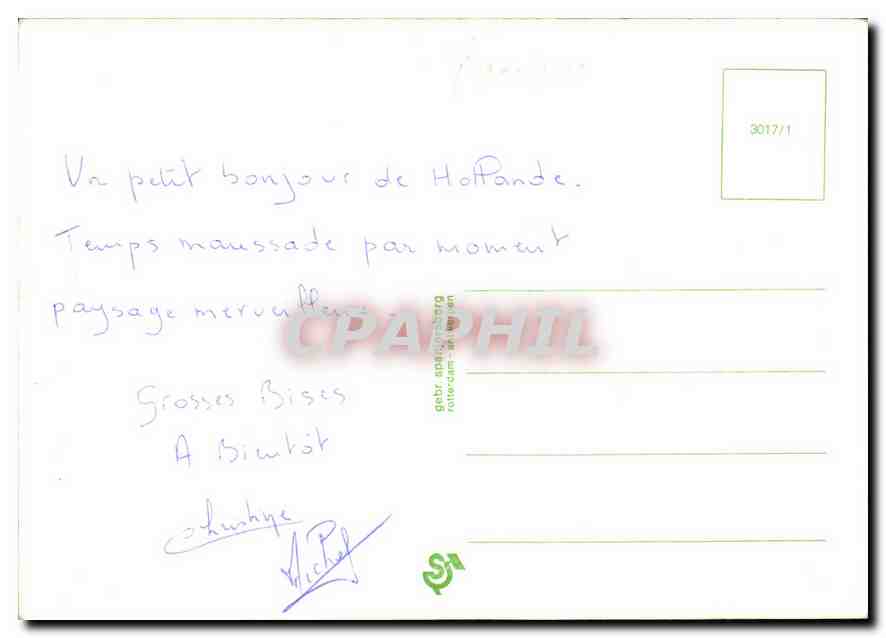 3017/1
Un petit bonjour de Hollande.
Temps maussade par moment
paysage merveilleux.
CPAPHIL
gebr. spanjersberg
rotterdam - antwerpen
Grosses Bises
A Bientôt
Christine
Michel